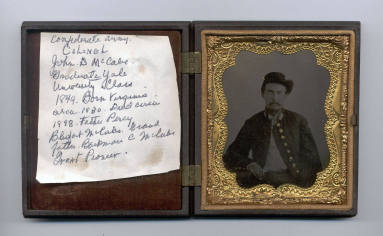 Confederate army.
Colonel
John D McCabe
Graduate Yale
University Class
1849. Born Virginia
circa 1830. Died circa
1898. Father Percy
McCabe. Grand
father C McCabe